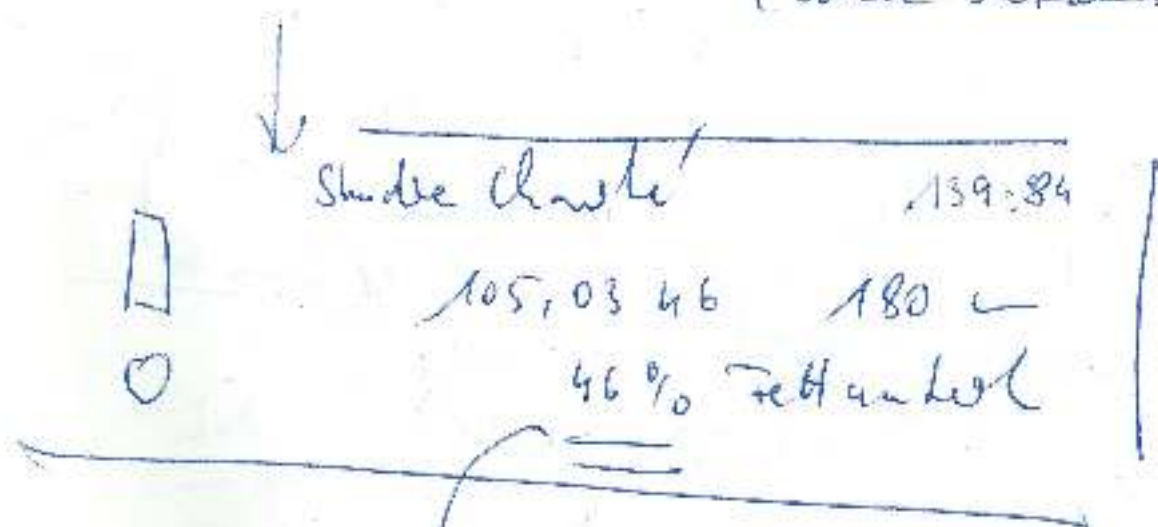 Studie Charité 139:84
105,03 kg 180 cm
46% Fettanteil